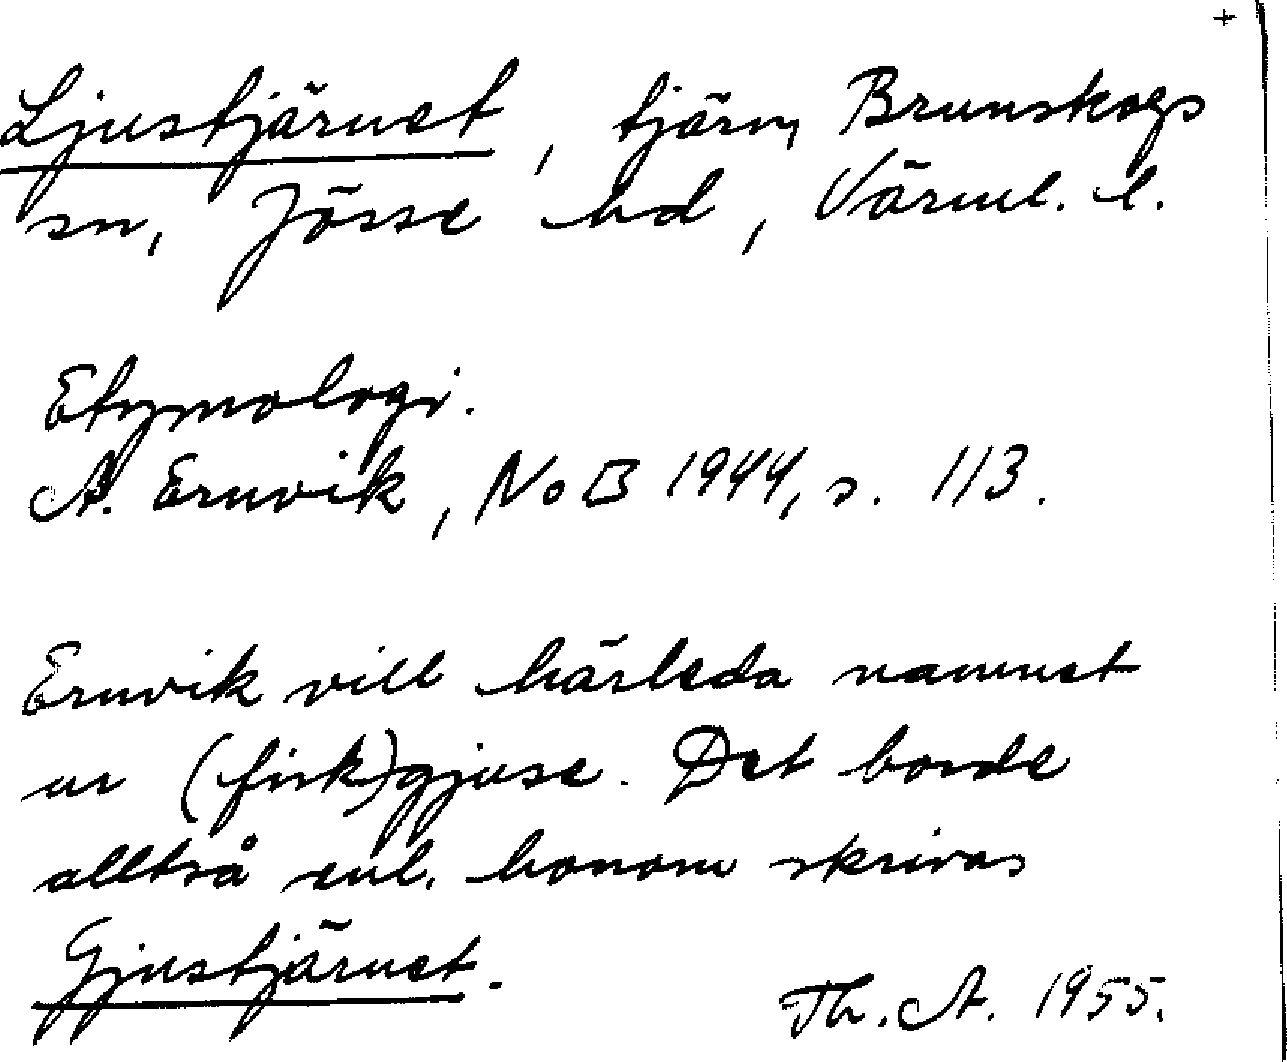 +
Ljustjärnet, tjärn, Brunskogs
sn, Jösse hd, Värml. l.
Etymologi.
A. Ernvik, NoB 1944, s. 113.
Ernvik vill härleda namnet
ur (fisk)gjuse. Det borde
alltså enl. honom skrivas
Gjustjärnet.
Th. A. 1955.